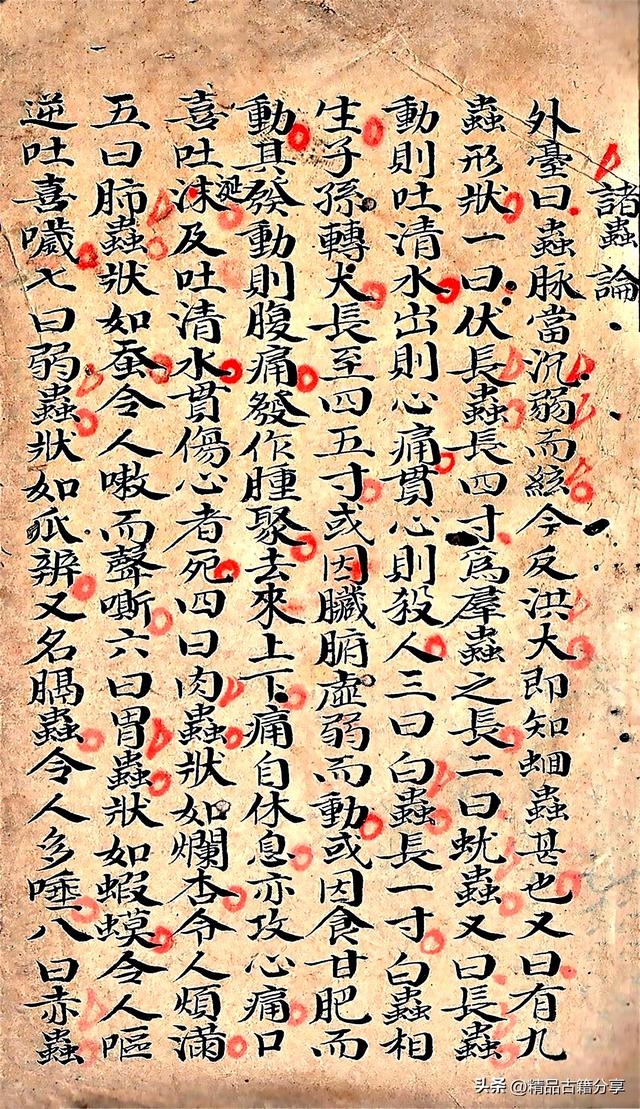 諸蟲論
外臺曰蟲脉當沉弱而絃今反洪大即知蛔蟲甚也又曰有九
蟲形狀一曰伏長蟲長四寸爲羣蟲之長二曰蚘蟲又曰長蟲
動則吐清水出則心痛貫心則殺人三曰白蟲長一寸白蟲相
生子孫轉大長至四五寸或因臟腑虛弱而動或因食甘肥而
動其發動則腹痛發作腫聚去來上下痛自休息亦攻心痛口
喜吐沫涎及吐清水貫傷心者死四曰肉蟲狀如爛杏令人煩滿
五曰肺蟲狀如蚕令人嗽而聲嘶六曰胃蟲狀如蝦蟆令人嘔
逆吐喜噦七曰弱蟲狀如瓜辨又名膈蟲令人多唾八曰赤蟲
头条 @精品古籍分享